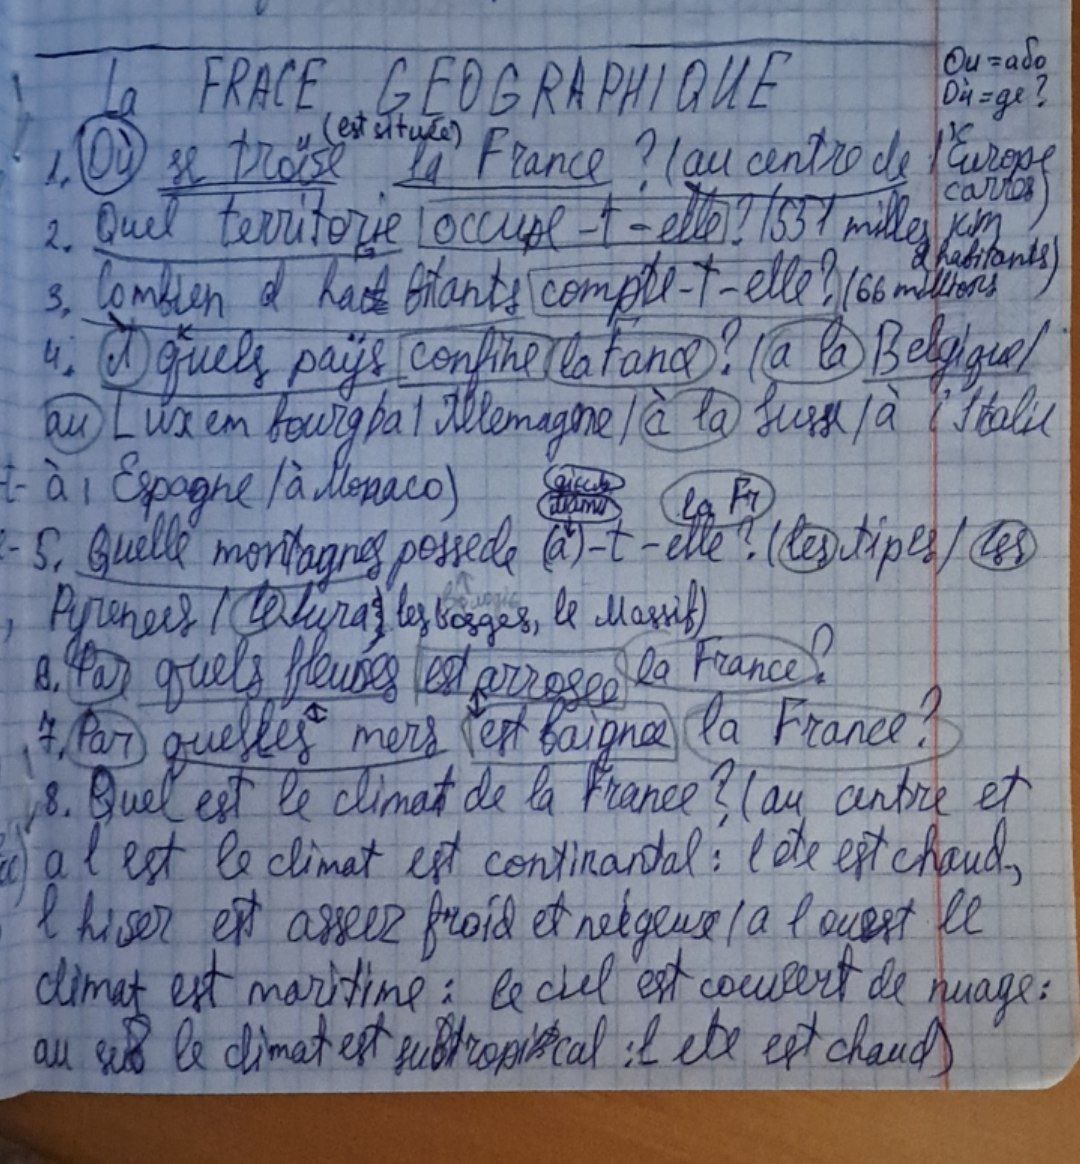 Ou = або
Où = ge?
La FRACE GEOGRAPHIQUE
(est située)
1. Où se troüse la France? (au centre de l Europe
2. Quel territorie occupe-t-elle? (551 milles km carros)
3. Combien d habitants compte-t-elle? (66 millions d habitants)
4. A quels pays confine la Fance? (a la Belgique/
au Luxembourg/a l Allemagne/à la Suss/à l'Italie
à l Espagne/à Monaco)
la Fr
5. Quelle montagnes possede (a)-t-elle? (les Alpes/les
Pyrenees/le Jura/les Vosges, le Massif)
Par quels fleuves est arrosee la France?
7. Par quelles mers est baignee la France?
8. Quel est le climat de la France? (au centre et
a l est le climat est continantal: l ete est chaud,
l hiser est asseez froid et neigeux/a l ouest le
climat est maritime: le ciel est couvert de nuage:
au sud le climat est subtropical: l ete est chaud)